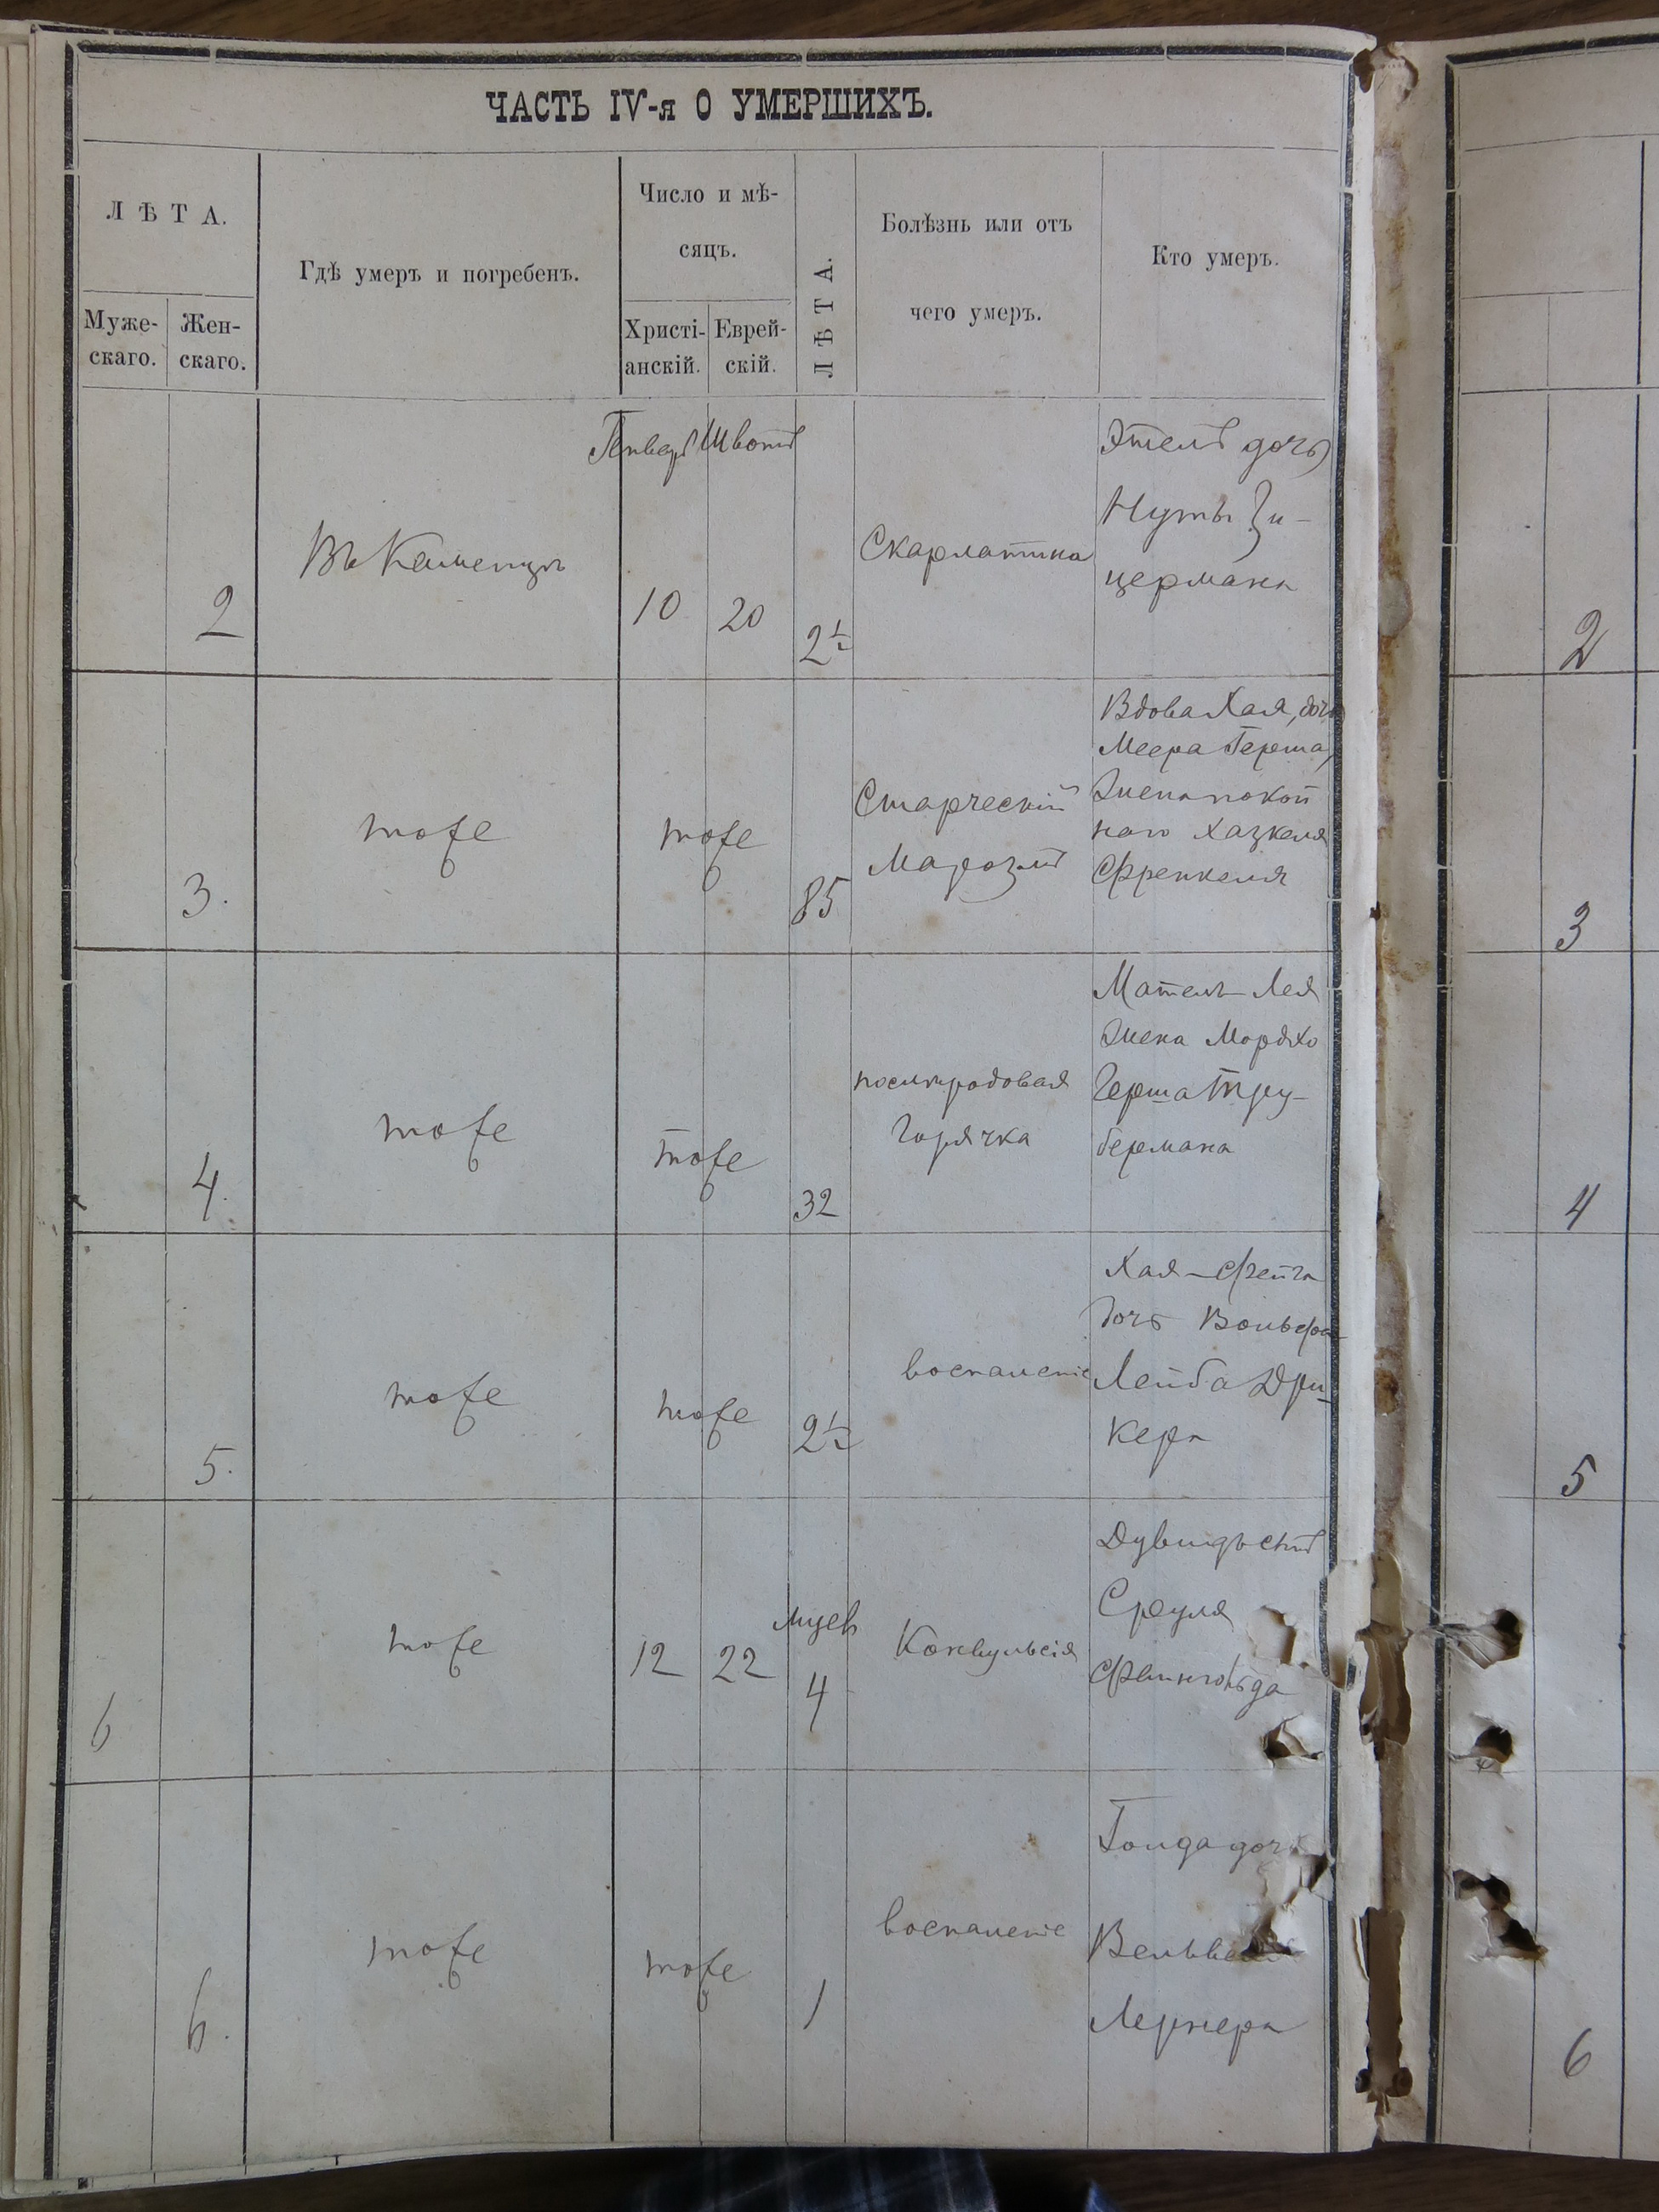 ЧАСТЬ IV-я О УМЕРШИХЪ.
ЛѢТА.
Муже-
скаго.
Жен-
скаго.
Гдѣ умеръ и погребенъ.
Число и мѣ-
сяцъ.
Христі-
анскій.
Еврей-
скій.
ЛѢТА.
Болѣзнь или отъ
чего умеръ.
Кто умеръ.
2
Въ Каменцѣ
Январь
10
Шватъ
20
2½
Скарлатина
Этель дочь
Нуты Зи-
цермана
2
3.
тоже
тоже
85
Старческій
Маразмъ
Вдова Хая, дочь
Меера Герша,
Жена покой
наго Хазкеля
Френкеля
3
4.
тоже
тоже
32
послѣродовая
Горячка
Мателъ-Лея
Жена Мордко
Герша Тру-
бермана
4
5.
тоже
тоже
2½
воспаленіе
Хая-Фейга
дочь Вольфа-
Лейба Дри-
кера
5
6
тоже
12
22
мцев
4
Конвульсія
Дувидъ сынъ
Сруля
Файнгольда
6.
тоже
тоже
1
воспаленіе
Голда дочь
Лернера
6